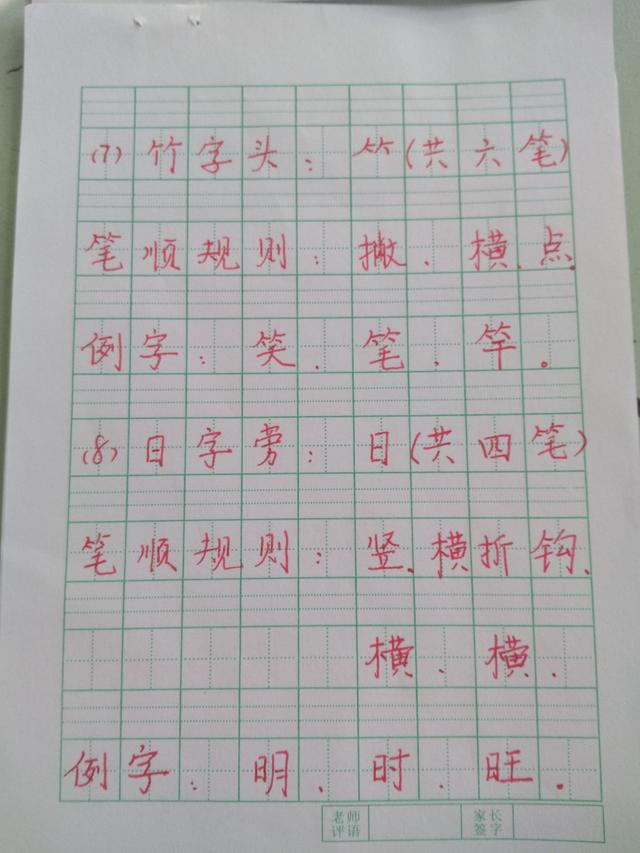 (7)竹字头：⺮(共六笔)
笔顺规则：撇、横、点.
例字：笑、笔、竿。
(8)日字旁：日(共四笔)
笔顺规则：竖、横折钩、
横、横.
例字：明、时、旺.
老师评语
家长签字